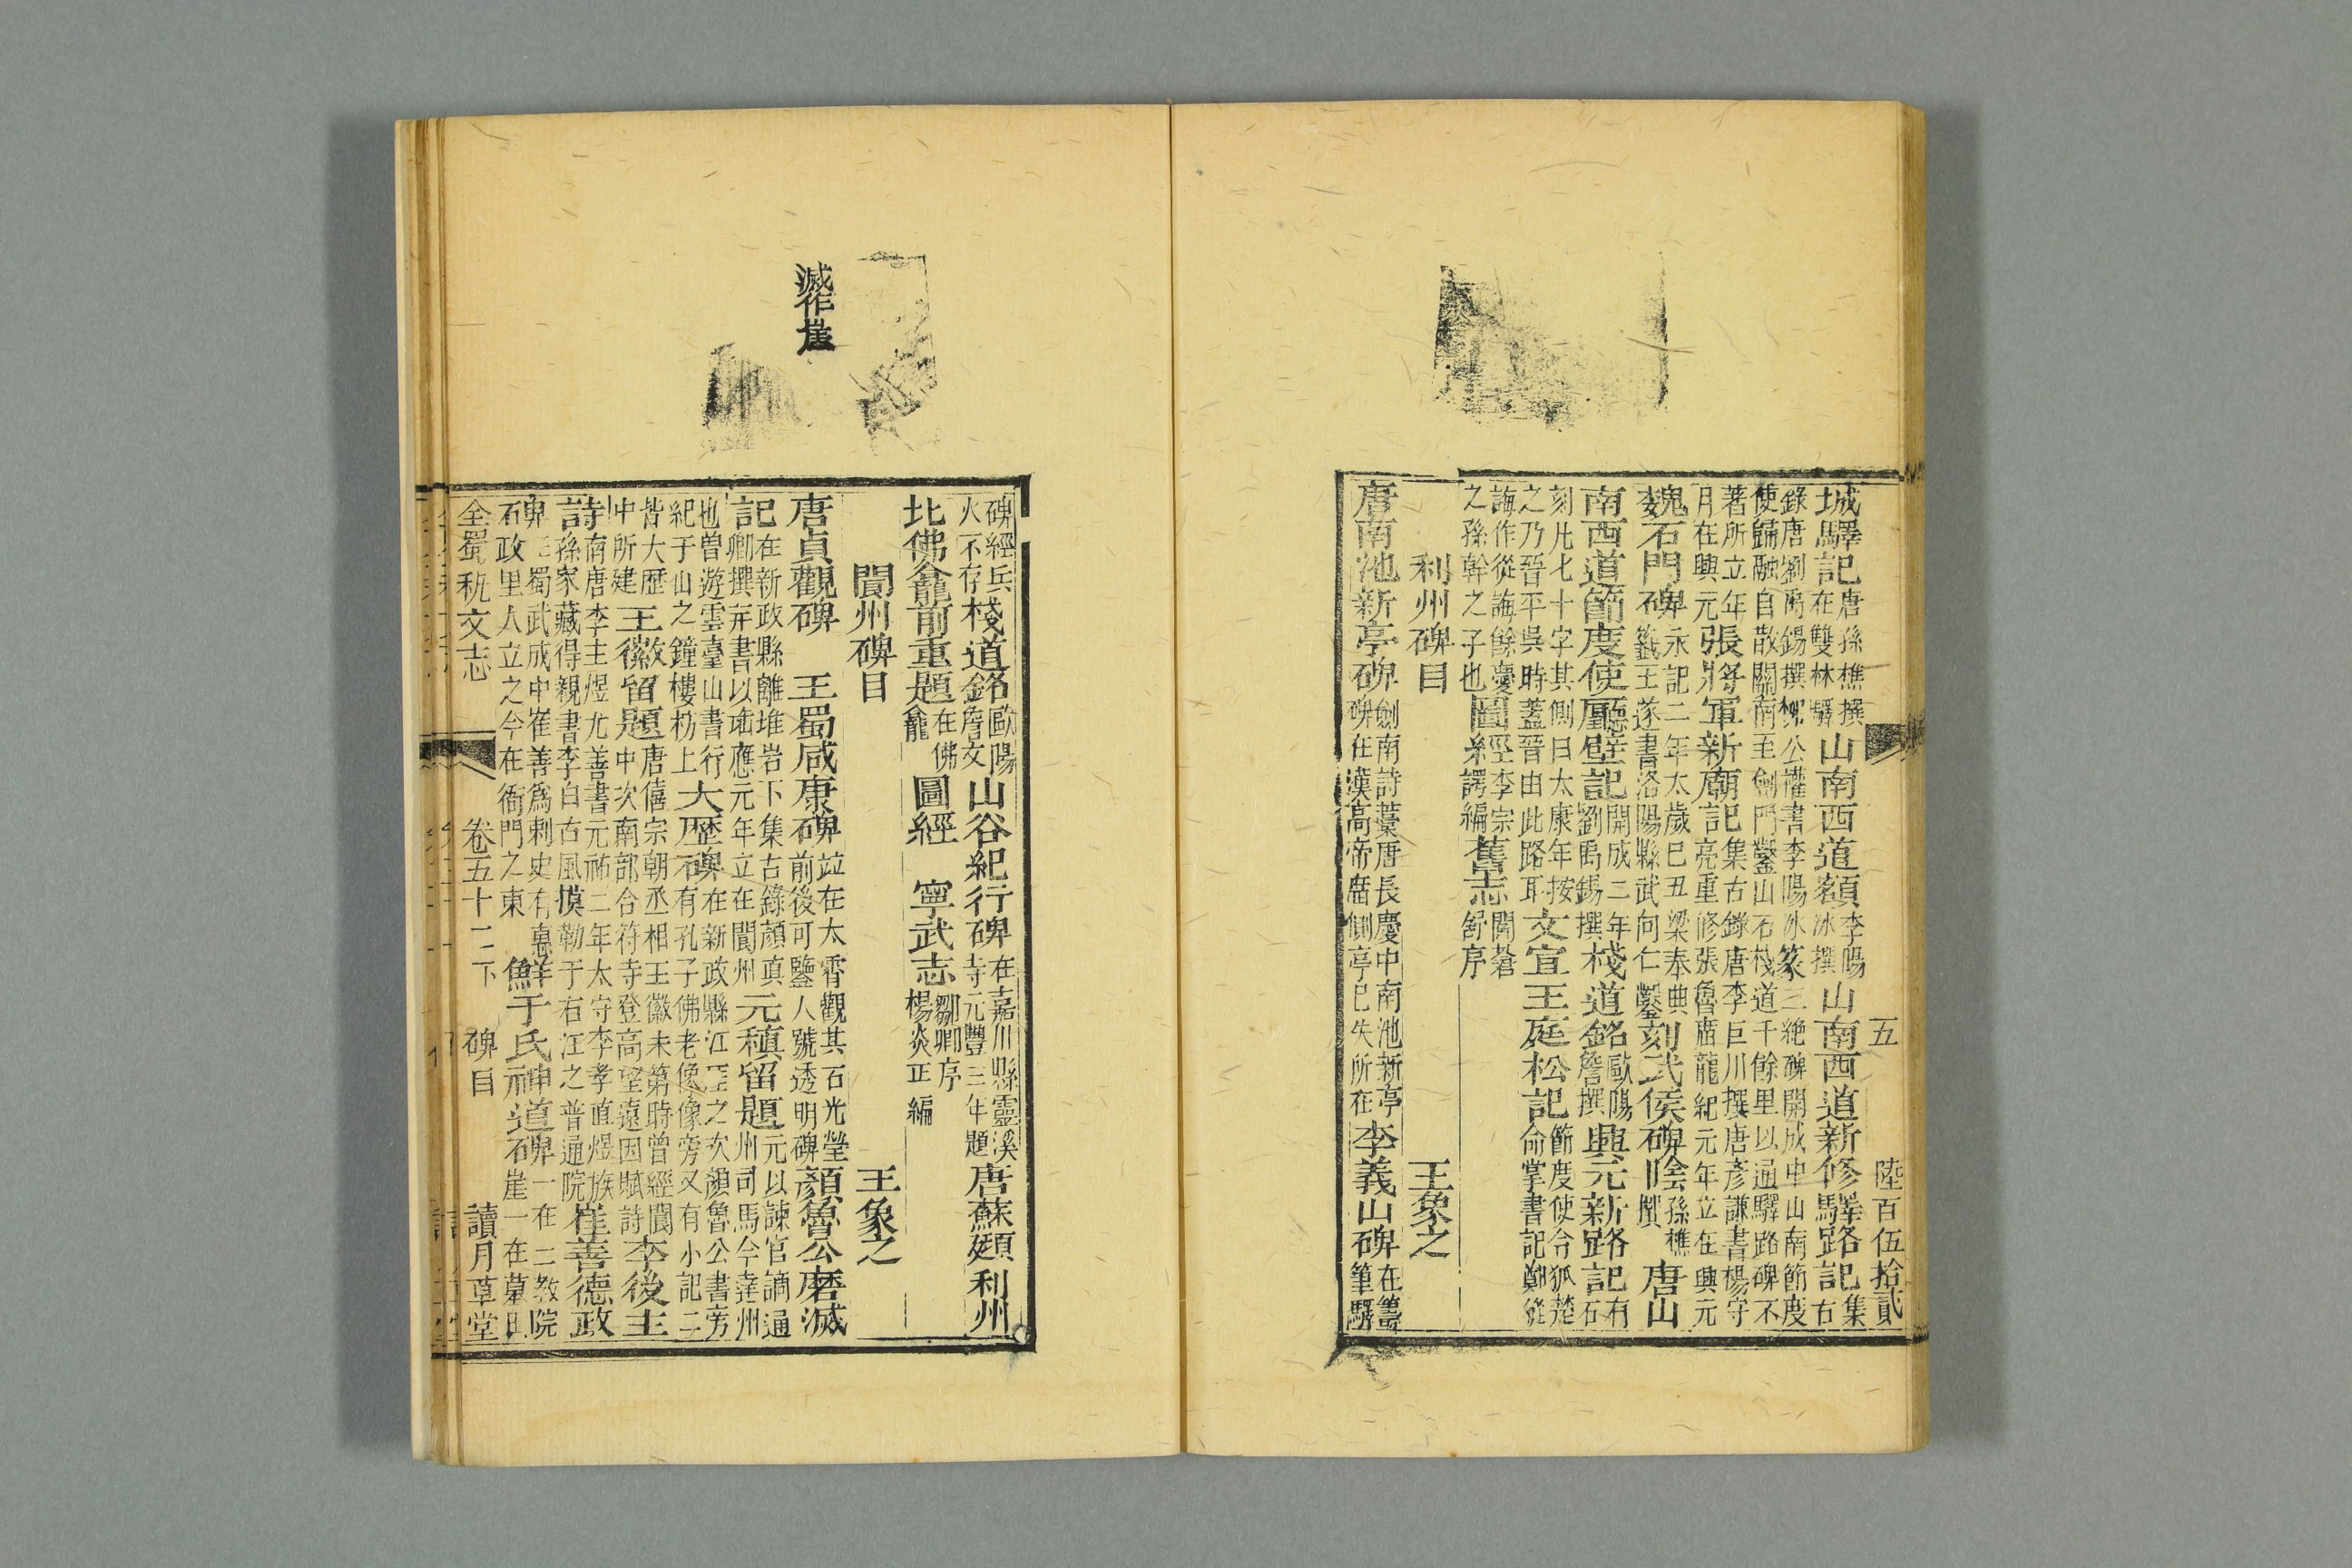 五
陸百伍拾貳
城驛記唐孫樵撰在雙林驛山南西道額李陽冰撰山南西道新修驛路記集古
錄唐劉禹錫撰柳公權書李陽冰篆三絕碑開成中山南節度
使歸融自散關南至劍門鑿山石棧道千餘里以通驛路碑不
著所立年張將軍新廟記集古錄唐李巨川撰唐彥謙書楊守
月在興元亮重修張魯廟龍紀元年立在興元
魏石門碑永記二年太歲己丑梁奉典籤王遂書洛陽縣武向仁鑿刻武侯碑陰孫樵撰唐山
南西道節度使廳壁記開成二年劉禹錫撰棧道銘歐陽詹撰興元新路記有石
刻凡七十字其側曰太康年按
之乃晉平吳時蓋晉由此路耳文宣王庭松記節度使令狐楚俞掌書記鄭從
誨作從誨餘慶
之孫幹之子也圖經李宗諤編舊志閻蒼舒序
利州碑目
王象之
唐南池新亭碑劍南詩藁唐長慶中南池新亭碑在漢高帝廟側亭已失所在李義山碑在籌筆驛
滅作崖
碑經兵火不存棧道銘歐陽詹文山谷紀行碑在嘉川縣靈溪寺元豐三年題唐蘇頲利州
北佛龕前重題在佛龕圖經寧武志鄒卿序楊炎正編
閬州碑目
王象之
唐貞觀碑王蜀咸康碑竝在太霄觀其石光瑩前後可鑒人號透明碑顏魯公磨滅
記在新政縣離堆岩下集古錄顏真卿撰并書以瑜應元年立在閬州元稹留題元以諫官謫通州司馬今達州
也曾遊雲臺山書行
紀于山之鐘樓枋上大歷碑在新政縣江𡊮之次顏魯公書旁有孔子佛老像像旁又有小記二
皆大歷中所建王徽留題唐僖宗朝丞相王徽未第時曾經閬中次南部合符寺登高望遠因賦詩李後主
詩南唐李主煜尤善書元祐二年太守李孝直煜族孫家藏得親書李白古風摸勒于右江之普通院崔善德政
碑三蜀武成中崔善爲刺史有惠
石政里人立之今在衙門之東鮮于氏神道碑一在二教院石崖一在墓田
全蜀秇文志
卷五十二下
碑目
讀月草堂